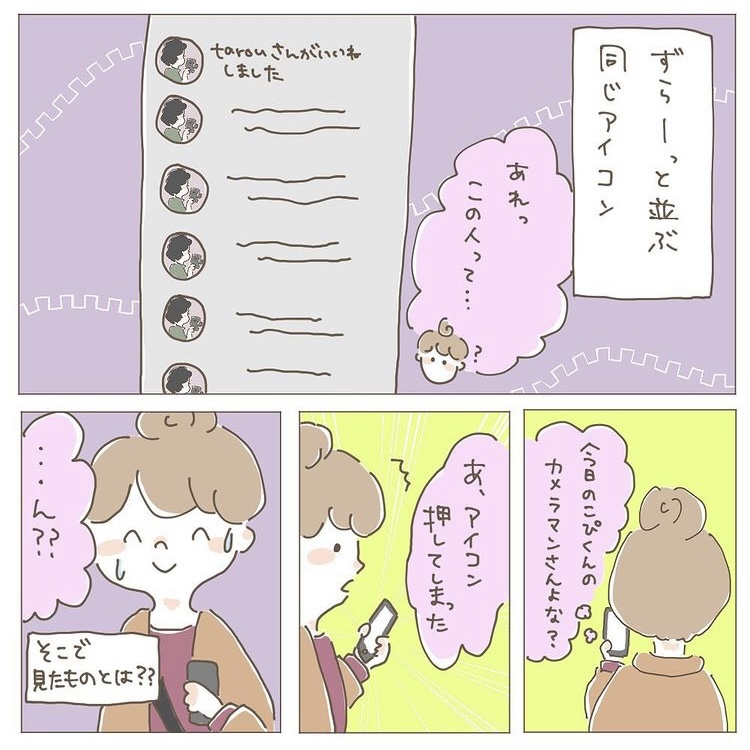 ずらーっと並ぶ
同じアイコン
tarouさんがいいね
しました
あれっ
この人って…
?
今日のこぴくんの
カメラマンさんよな?
あ、アイコン
押してしまった
…ん??
そこで
見たものとは??